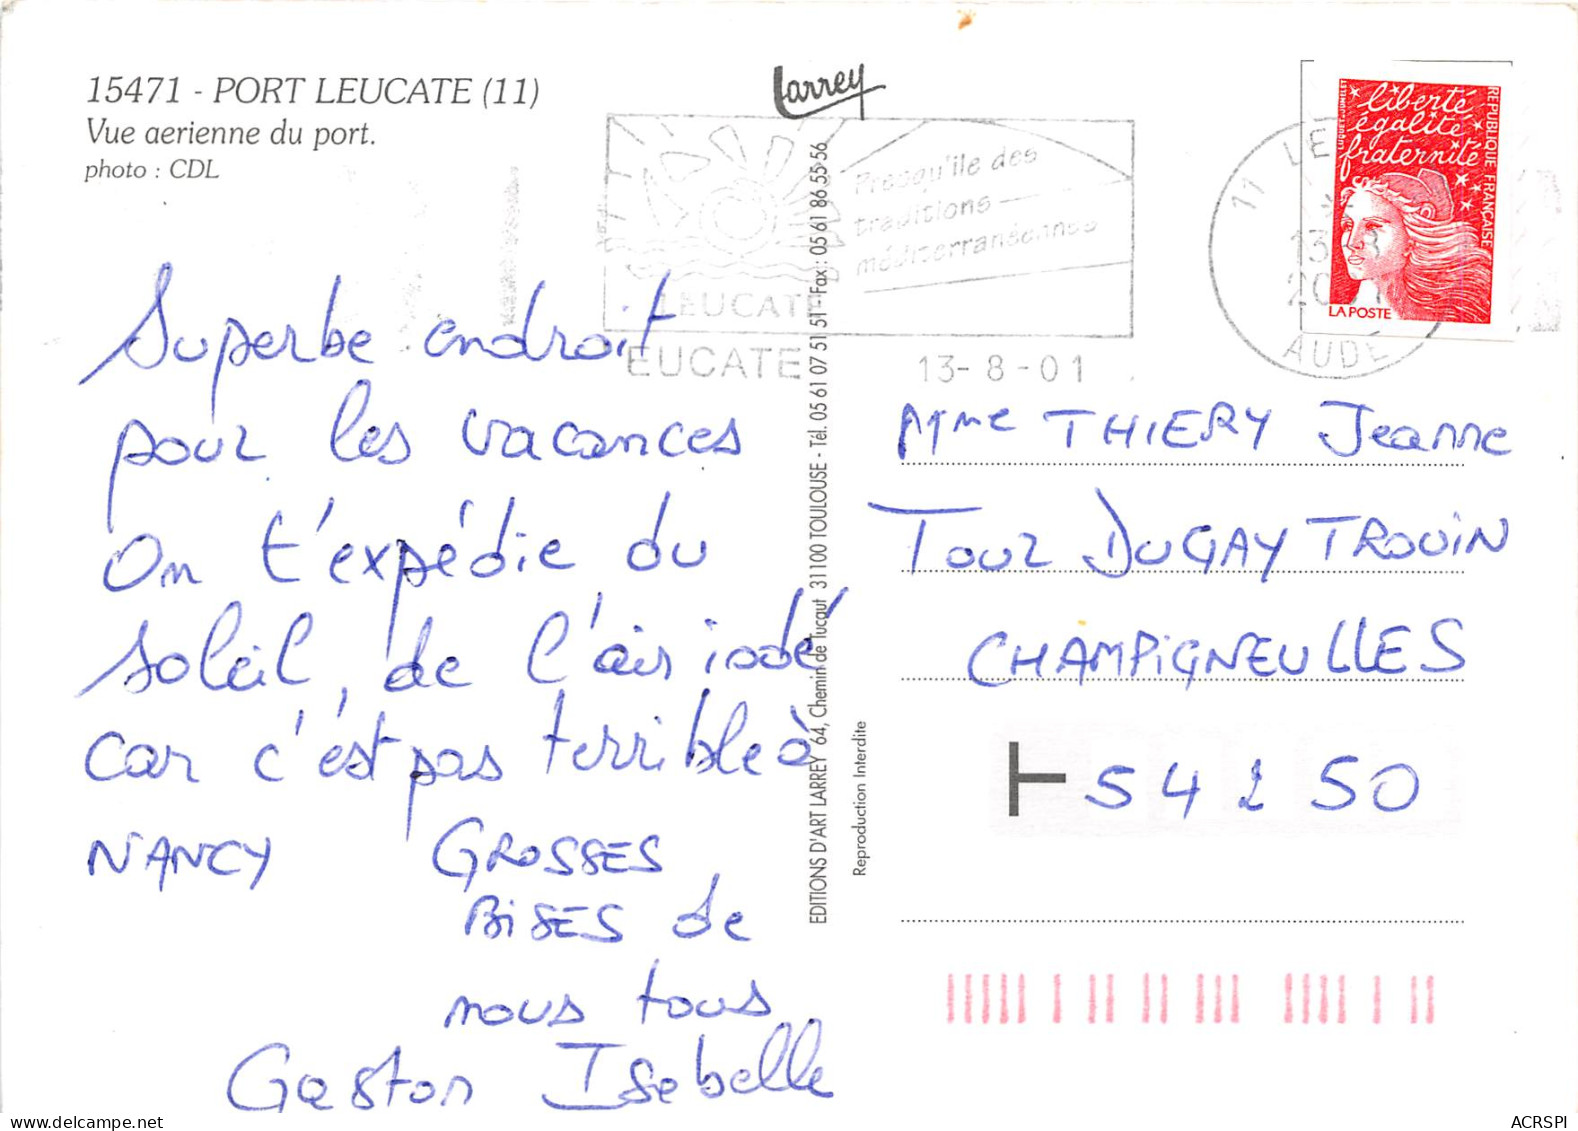 15471 - PORT LEUCATE (11)
Vue aerienne du port.
photo : CDL
Larrey
Presqu'île des
traditions
méditerranéennes
LEUCATE
EUCATE
13-8-01
11 LE
13
20
AUDE
liberté
égalité
fraternité
REPUBLIQUE FRANÇAISE
LA POSTE
Superbe endroit
pour les vacances
On t'expédie du
soleil, de l'air iodé
car c'est pas terrible à
NANCY GROSSES
BISES de
nous tous
Gaston Isabelle
EDITIONS D'ART LARREY 64, Chemin de Tucaut 31100 TOULOUSE - Tél. 05 61 07 51 51 - Fax : 05 61 86 55 56
Reproduction Interdite
Mme THIERY Jeanne
Tour DUGAY TROUIN
CHAMPIGNEULLES
54250
ACRSPI